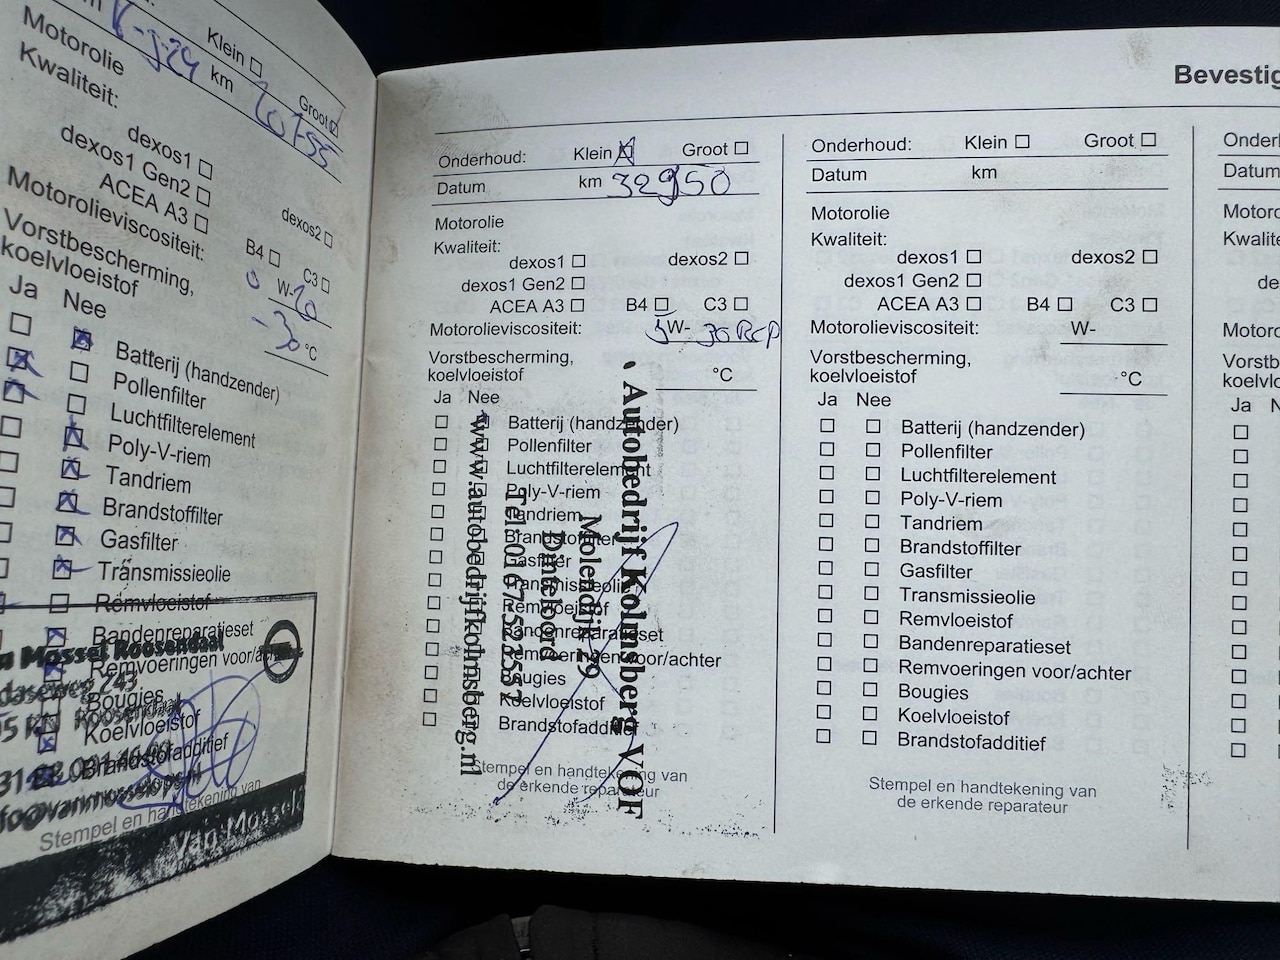 Klein ☐
Groot ☑
km 20755
Motorolie
Kwaliteit:
dexos1 ☐
dexos2 ☐
dexos1 Gen2 ☐
ACEA A3 ☐ B4 ☐ C3 ☐
Motorolieviscositeit: 0 W-20
Vorstbescherming,
koelvloeistof -30 °C
Ja Nee
Batterij (handzender)
Pollenfilter
Luchtfilterelement
Poly-V-riem
Tandriem
Brandstoffilter
Gasfilter
Transmissieolie
Remvloeistof
Bandenreparatieset
Remvoeringen voor/achter
Bougies
Koelvloeistof
Brandstofadditief
Stempel en handtekening van
Mossel Roosendaal
243
Roosendaal
Van Mossel
Bevestig
Onderhoud: Klein ☒ Groot ☐
Datum km 32950
Motorolie
Kwaliteit:
dexos1 ☐ dexos2 ☐
dexos1 Gen2 ☐
ACEA A3 ☐ B4 ☐ C3 ☐
Motorolieviscositeit: 5 W- 30
Vorstbescherming,
koelvloeistof °C
Ja Nee
Batterij (handzender)
Pollenfilter
Luchtfilterelement
Poly-V-riem
Tandriem
Brandstoffilter
Gasfilter
Transmissieolie
Remvloeistof
Bandenreparatieset
Remvoeringen voor/achter
Bougies
Koelvloeistof
Brandstofadditief
Stempel en handtekening van
de erkende reparateur
Autobedrijf Kolmsberg VOF
Molendijk 29
Dinteloord
Tel: 0167523552
www.autobedrijfkolmsberg.nl
Onderhoud: Klein ☐ Groot ☐
Datum km
Motorolie
Kwaliteit:
dexos1 ☐ dexos2 ☐
dexos1 Gen2 ☐
ACEA A3 ☐ B4 ☐ C3 ☐
Motorolieviscositeit: W-
Vorstbescherming,
koelvloeistof °C
Ja Nee
☐ ☐ Batterij (handzender)
☐ ☐ Pollenfilter
☐ ☐ Luchtfilterelement
☐ ☐ Poly-V-riem
☐ ☐ Tandriem
☐ ☐ Brandstoffilter
☐ ☐ Gasfilter
☐ ☐ Transmissieolie
☐ ☐ Remvloeistof
☐ ☐ Bandenreparatieset
☐ ☐ Remvoeringen voor/achter
☐ ☐ Bougies
☐ ☐ Koelvloeistof
☐ ☐ Brandstofadditief
Stempel en handtekening van
de erkende reparateur
Onderh
Datum
Motoro
Kwalite
de
Motoro
Vorstb
koelvlo
Ja N